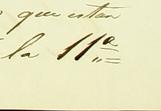 que estan
la 11ª